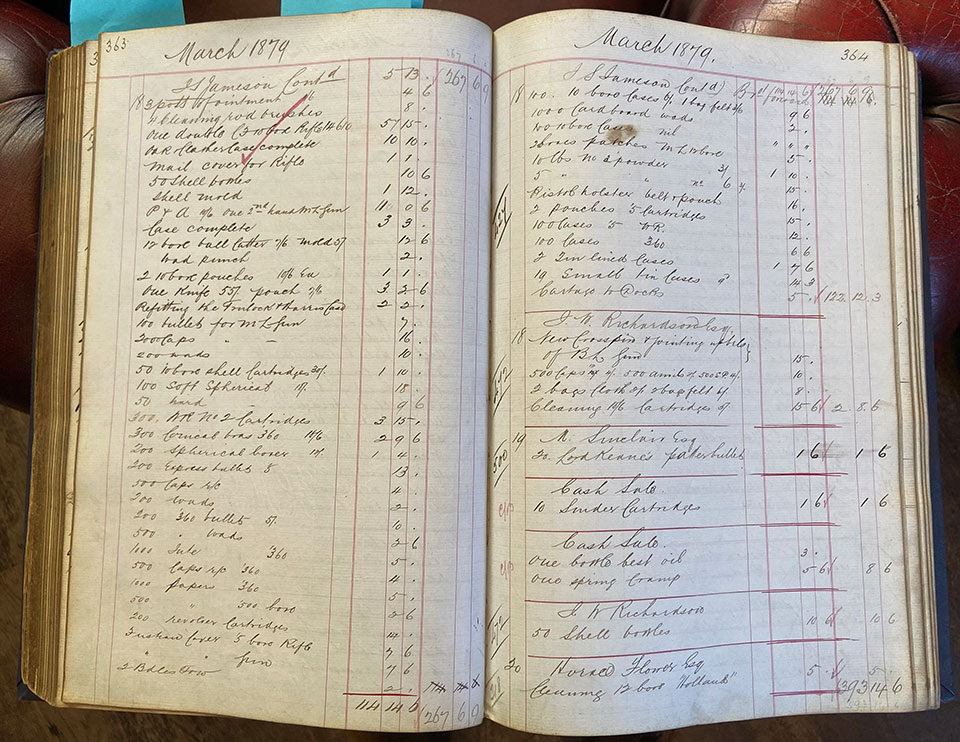 363
March 1879
J S Jameson Cont'd 5 13 . 267 6 9
18 3 pots ointment 4 6
4 Cleaning rod brushes 8 .
One double C.F. 10 bore Rifle 51 15 .
Oak & leather Case complete 10 10 .
Mail cover for Rifle 1 1 .
50 Shell bottles 10 6
Shell mold 1 12 .
P & A 10/6 One 2nd hand M L Gun 11 0 6
Case complete 3 3 .
12 bore ball Cutter 7/6 mold 5/ 12 6
Wad punch 2 .
2 10 bore pouches 10/6 Ea 1 1 .
One Knife 55/ pouch 7/6 3 2 6
Refitting the 2 2 .
100 bullet for M L Gun 7 .
200 Caps " - 16 .
200 wads 10 .
50 10 bore shell Cartridges 1 10 .
100 Soft Spherical 15 .
50 hard - 9 6
300 No 2 Cartridges 3 15 .
300 Conical bras 360 2 9 6
200 Spherical 1 4 .
200 Express bullet 13 .
500 Caps 4 .
200 Wads 2 .
200 360 bullet 5/ 10 .
500 " Wads 2 6
1000 360 5 .
500 Caps 360 4 .
1000 papers 360 5 .
500 " 500 bore 2 6
200 revolver Cartridges 14 .
Cover 5 bore Rifle 7 6
" " Gun 7 6
2 Bdles Tow 2 .
114 14 6 267 6 9
March 1879.
364
J S Jameson (Cont'd) forward 114 14 6 267 6 9
18 100 10 bore Cases 1 bag felt 9 6
1000 Cardboard wads 2 .
100 10 bore Cases nil " " "
2 boxes patches M L 12 bore 5 .
10 lbs No 2 powder 3/ 1 10 .
5 " " No 6 15 .
Pistol holster belt & pouch 16 .
2 pouches 5 Cartridges 15 .
100 Cases 5 12 .
100 Cases 360 6 6
2 Tin lined Cases 1 7 6
19 Small tin Cases 9 14 3
Cartage to Docks 5 . 122 12 3
J. W. Richardson Esq.
18 New Crosspin & jointing up brls
of B L Gun 15 .
500 Caps 10 .
2 bags Cloth 2 bag felt 8 .
Cleaning 10/6 Cartridges 15 6 2 8 6
19 Sinclair Esq
20 Lord Keane's patter bullet 1 6 1 6
500
Cash Sale.
10 Snider Cartridges 1 6 1 6
Cash Sale.
One bottle best oil 3 .
One spring Cramp 5 6 8 6
J W Richardson
50 Shell bottles 10 6 10 6
20 Horace Flower Esq
Cleaning 12 bore "Holland's" 5 . 5 .
393 14 6